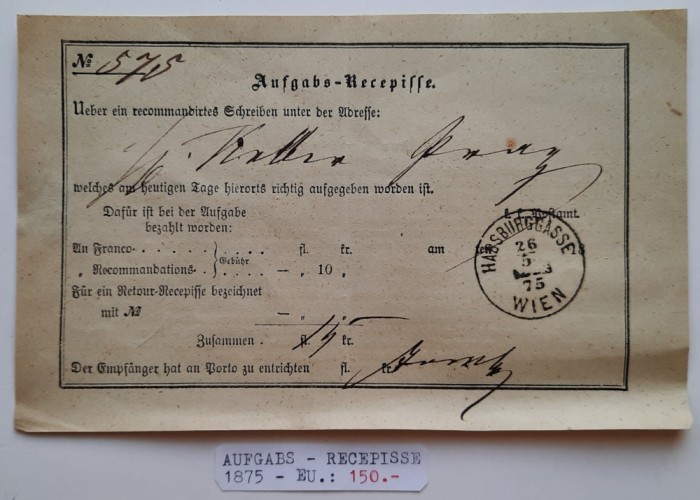 № 575
Aufgabs-Recepisse.
Ueber ein recommandirtes Schreiben unter der Adresse:
Prag
welches am heutigen Tage hierorts richtig aufgegeben worden ist.
Dafür ist bei der Aufgabe
bezahlt worden:
k. k. Postamt.
An Franco . . . . . . fl. kr. am ten
Gebühr
„ Recommandations . . . . . — „ 10 „
HABSBURGGASSE
26
5
75
WIEN
Für ein Retour-Recepisse bezeichnet
mit № —
Zusammen . fl. 15 kr.
Der Empfänger hat an Porto zu entrichten fl. kr.
AUFGABS - RECEPISSE
1875 - EU.: 150.-